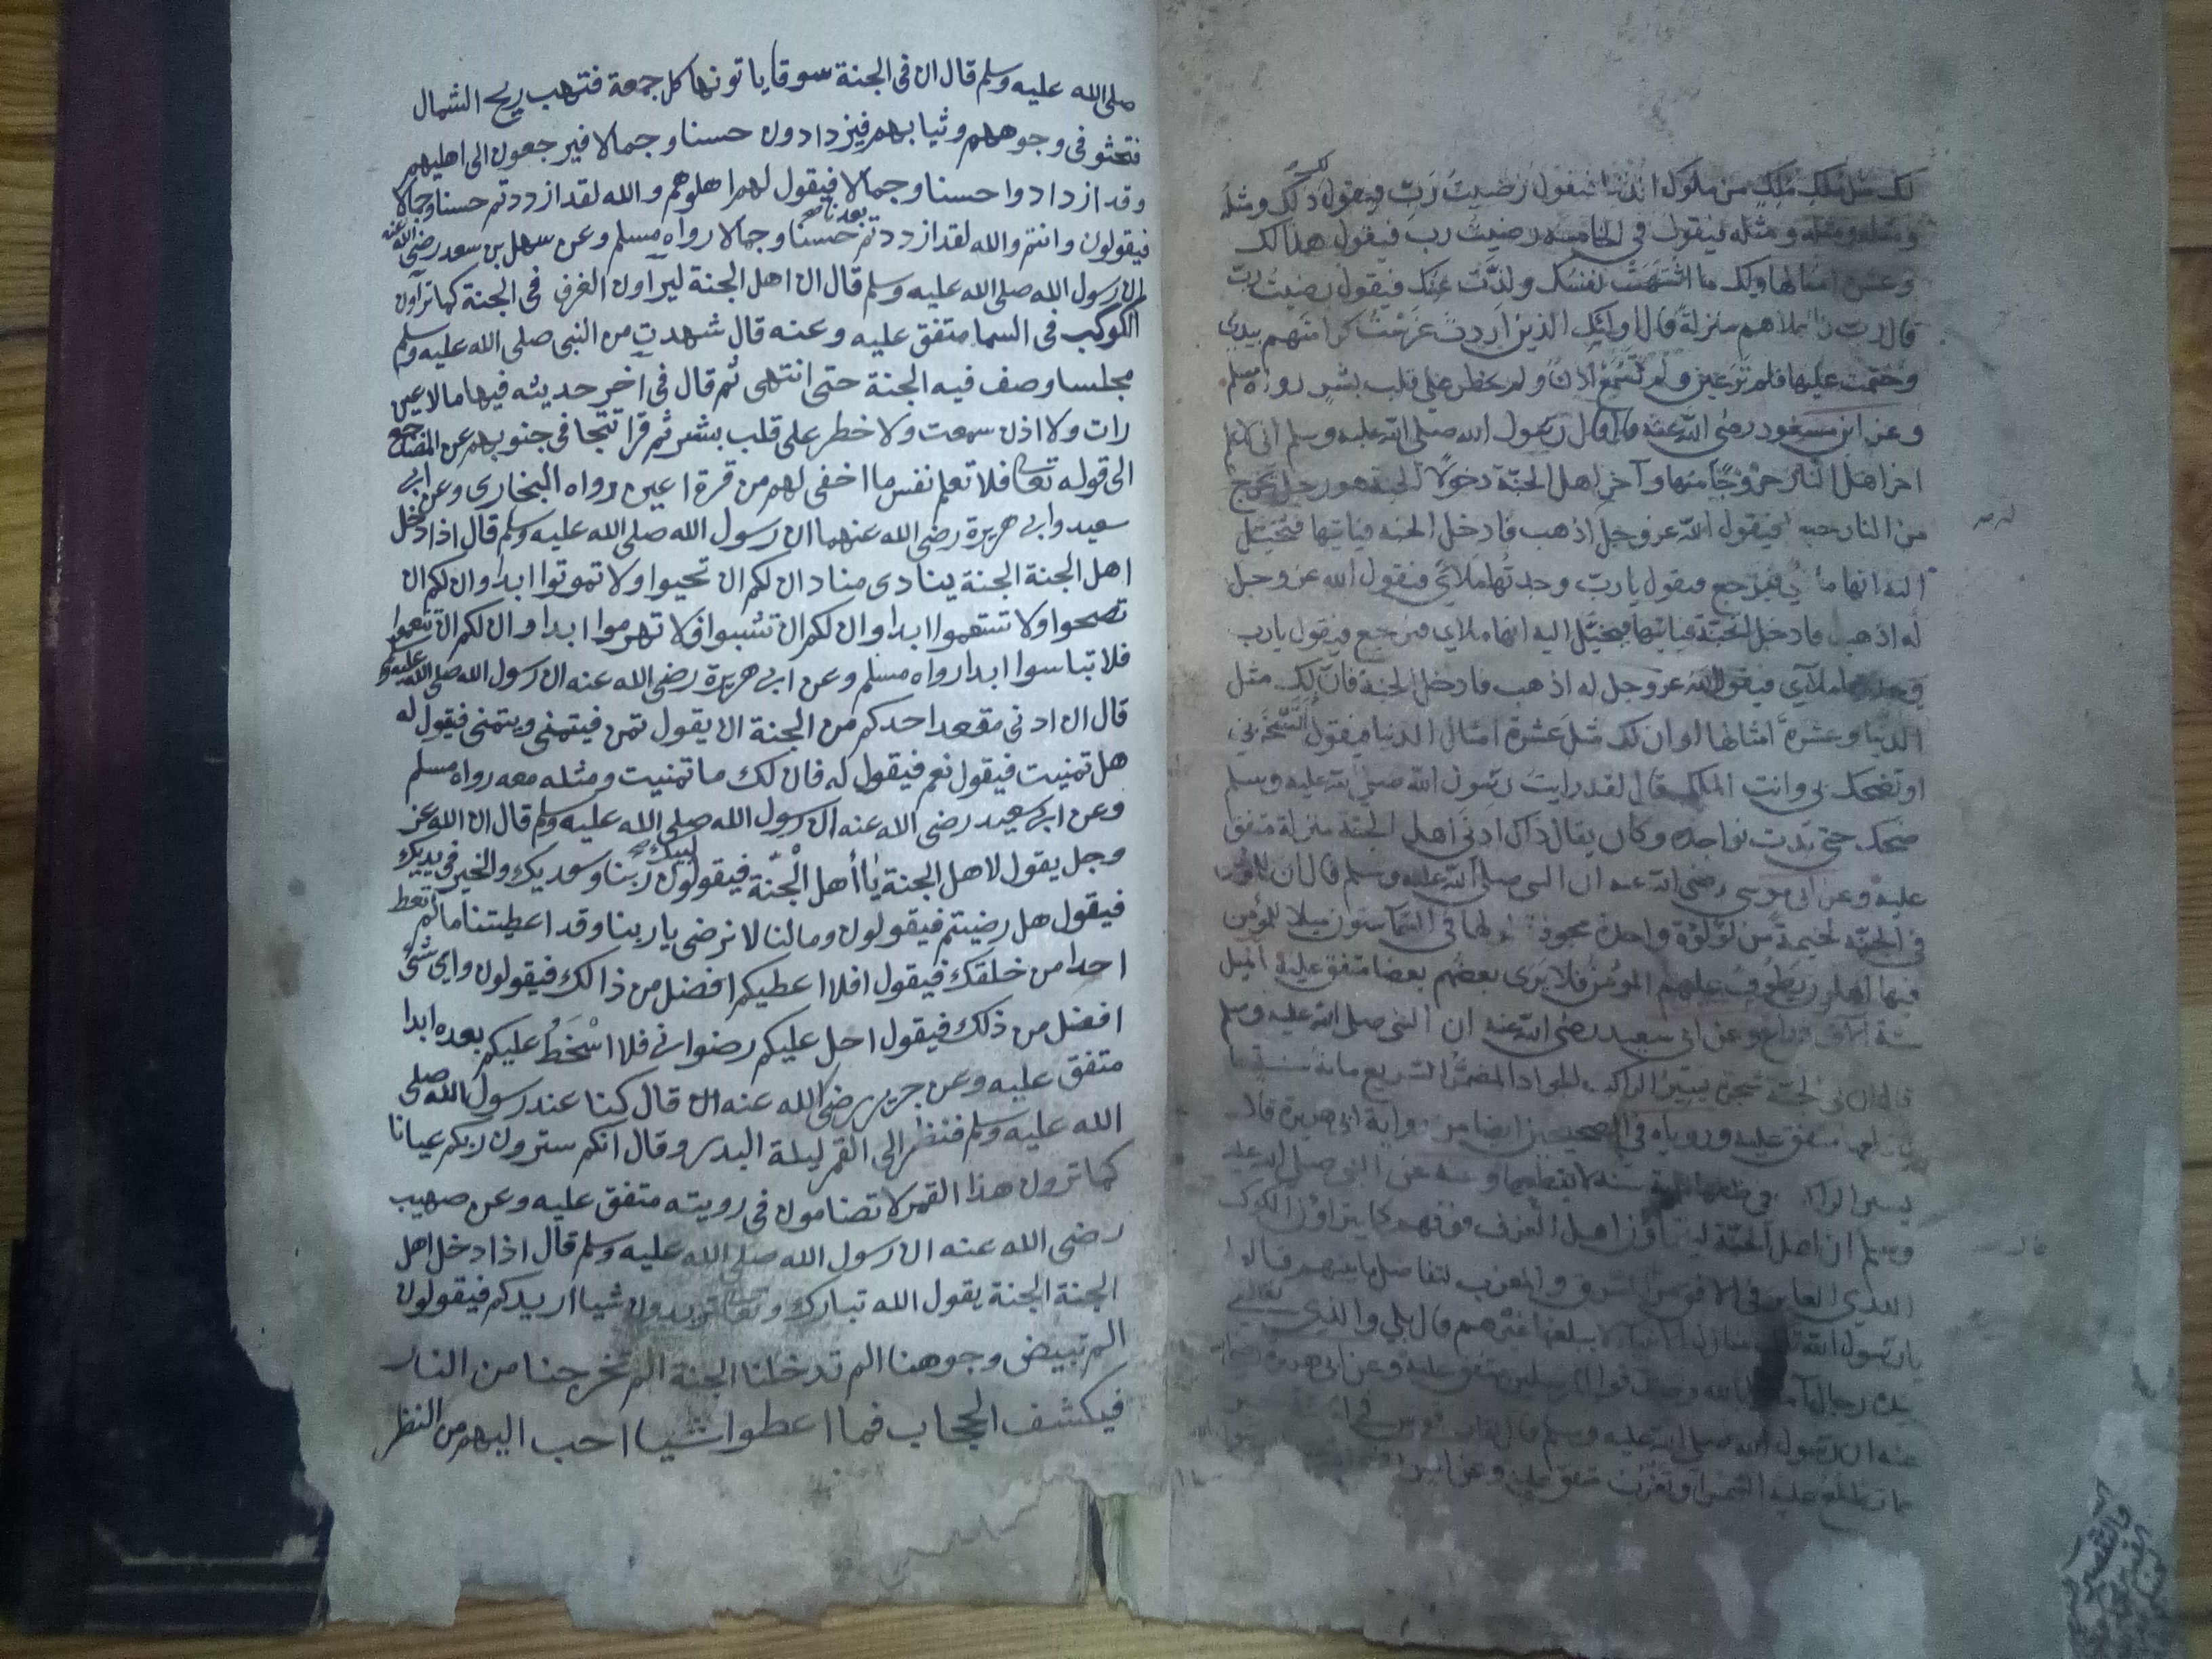 لك مثل ملك ملك من ملوك الدنيا فيقول رضيت رب فيقول لك ذلك ومثله
ومثله ومثله ومثله فيقول في الخامسة رضيت رب فيقول هذا لك
وعشرة امثاله ولك ما اشتهت نفسك ولذت عينك فيقول رضيت رب
قال رب فاعلاهم منزلة قال اولئك الذين اردت غرست كرامتهم بيدي
وختمت عليها فلم تر عين ولم تسمع اذن ولم يخطر على قلب بشر رواه مسلم
وعن ابن مسعود رضى الله عنه قال قال رسول الله صلى الله عليه وسلم اني لاعلم
اخر اهل النار خروجا منها وآخر اهل الجنة دخولا الجنة رجل يخرج
من النار حبوا فيقول الله عز وجل له اذهب فادخل الجنة فياتيها فيخيل
اليه انها ملأى فيرجع فيقول يا رب وجدتها ملآي فيقول الله عز وجل
له اذهب فادخل الجنة فياتيها فيخيل اليه انها ملاي فيرجع فيقول يارب
وجدتها ملآي فيقول الله عز وجل له اذهب فادخل الجنة فان لك مثل
الدنيا وعشرة امثالها او ان لك مثل عشرة امثال الدنيا فيقول اتسخر بي
او تضحك بي وانت الملك قال لقد رايت رسول الله صلى الله عليه وسلم
ضحك حتى بدت نواجذه وكان يقال ذاك ادنى اهل الجنة منزلة متفق
عليه وعن ابي موسى رضى الله عنه ان النبي صلى الله عليه وسلم قال ان للمؤمن
في الجنة لخيمة من لؤلؤة واحدة مجوفة طولها في السماء ستون ميلا للمؤمن
فيها اهلون يطوف عليهم المؤمن فلا يرى بعضهم بعضا متفق عليه الميل
ستة آلاف ذراع وعن ابي سعيد رضى الله عنه ان النبي صلى الله عليه وسلم
قال ان في الجنة شجرة يسير الراكب الجواد المضمر السريع مائة سنة ما
يقطعها متفق عليه وروياه في الصحيحين ايضا من رواية ابي هريرة قال
يسير الراكب في ظلها مائة سنة لا يقطعها وعنه عن النبي صلى الله عليه
وسلم ان اهل الجنة ليتراؤن اهل الغرف من فوقهم كما يتراؤن الكوكب
الدري الغابر في الافق من المشرق والمغرب لتفاضل ما بينهم قالوا
يا رسول الله تلك منازل الانبياء لا يبلغها غيرهم قال بلي والذي نفسي
بيده رجال آمنوا بالله وصدقوا المرسلين متفق عليه وعن ابي هريرة رضى الله
عنه ان رسول الله صلى الله عليه وسلم قال لقاب قوس في الجنة خير
مما تطلع عليه الشمس او تغرب متفق عليه وعن انس
صلى الله عليه وسلم قال ان فى الجنة سوقا ياتونها كل جمعة فتهب ريح الشمال
فتحثو فى وجوههم وثيابهم فيزدادون حسنا وجمالا فيرجعون الى اهليهم
وقد ازدادوا حسنا وجمالا فيقول لهم اهلوهم والله لقد ازددتم حسنا وجمالا
فيقولون وانتم والله لقد ازددتم بعدنا حسنا وجمالا رواه مسلم وعن سهل بن سعد رضى الله عنه
ان رسول الله صلى الله عليه وسلم قال ان اهل الجنة ليراون الغرف فى الجنة كما تراون
الكوكب فى السما متفق عليه وعنه قال شهدت من النبى صلى الله عليه وسلم
مجلسا وصف فيه الجنة حتى انتهى ثم قال فى اخر حديثه فيها ما لا عين
رات ولا اذن سمعت ولا خطر على قلب بشر ثم قرا تتجافى جنوبهم عن المضاجع
الى قوله تعا فلا تعلم نفس ما اخفى لهم من قرة اعين رواه البخارى وعن ابى
سعيد وابى هريرة رضى الله عنهما ان رسول الله صلى الله عليه وسلم قال اذا دخل
اهل الجنة الجنة ينادى مناد ان لكم ان تحيوا ولا تموتوا ابدا وان لكم ان
تصحوا ولا تستقموا ابدا وان لكم ان تشبوا فلا تهرموا ابدا وان لكم ان تنعموا
فلا تباسوا ابدا رواه مسلم وعن ابى هريرة رضى الله عنه ان رسول الله صلى الله عليه و
قال ان ادنى مقعد احدكم من الجنة ان يقول تمن فيتمنى ويتمنى فيقول له
هل تمنيت فيقول نعم فيقول له فان لك ما تمنيت ومثله معه رواه مسلم
وعن ابى سعيد رضى الله عنه ان رسول الله صلى الله عليه وسلم قال ان الله عز
وجل يقول لاهل الجنة يا أهل الجنة فيقولون لبيك ربنا وسعديك والخير فى يديك
فيقول هل رضيتم فيقولون وما لنا لا نرضى يا ربنا وقد اعطيتنا مالم تعط
احدا من خلقك فيقول افلا اعطيكم افضل من ذالك فيقولون واى شئ
افضل من ذلك فيقول احل عليكم رضوانى فلا اسْخَطُ عليكم بعده ابدا
متفق عليه وعن جرير رضى الله عنه ان قال كنا عند رسول الله صلى
الله عليه وسلم فنظر الى القمر ليلة البدر وقال انكم سترون ربكم عيانا
كما ترون هذا القمر لا تضامون فى رويته متفق عليه وعن صهيب
رضى الله عنه ان رسول الله صلى الله عليه وسلم قال اذا دخل اهل
الجنة الجنة يقول الله تبارك وتعا تريدون شيا ازيدكم فيقولون
الم تبيض وجوهنا الم تدخلنا الجنة الم تخرجنا من النار
فيكشف الحجاب فما اعطوا شيا احب اليهم من النظر